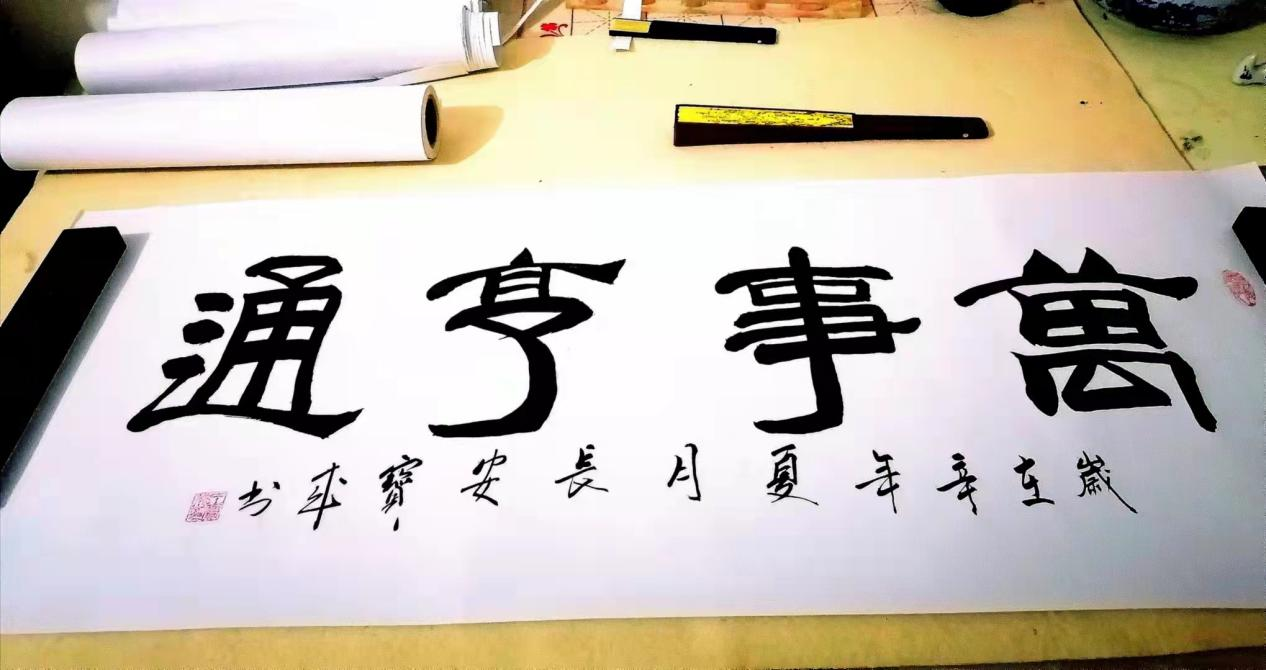 萬事亨通
歲在辛年夏月長安寶成书